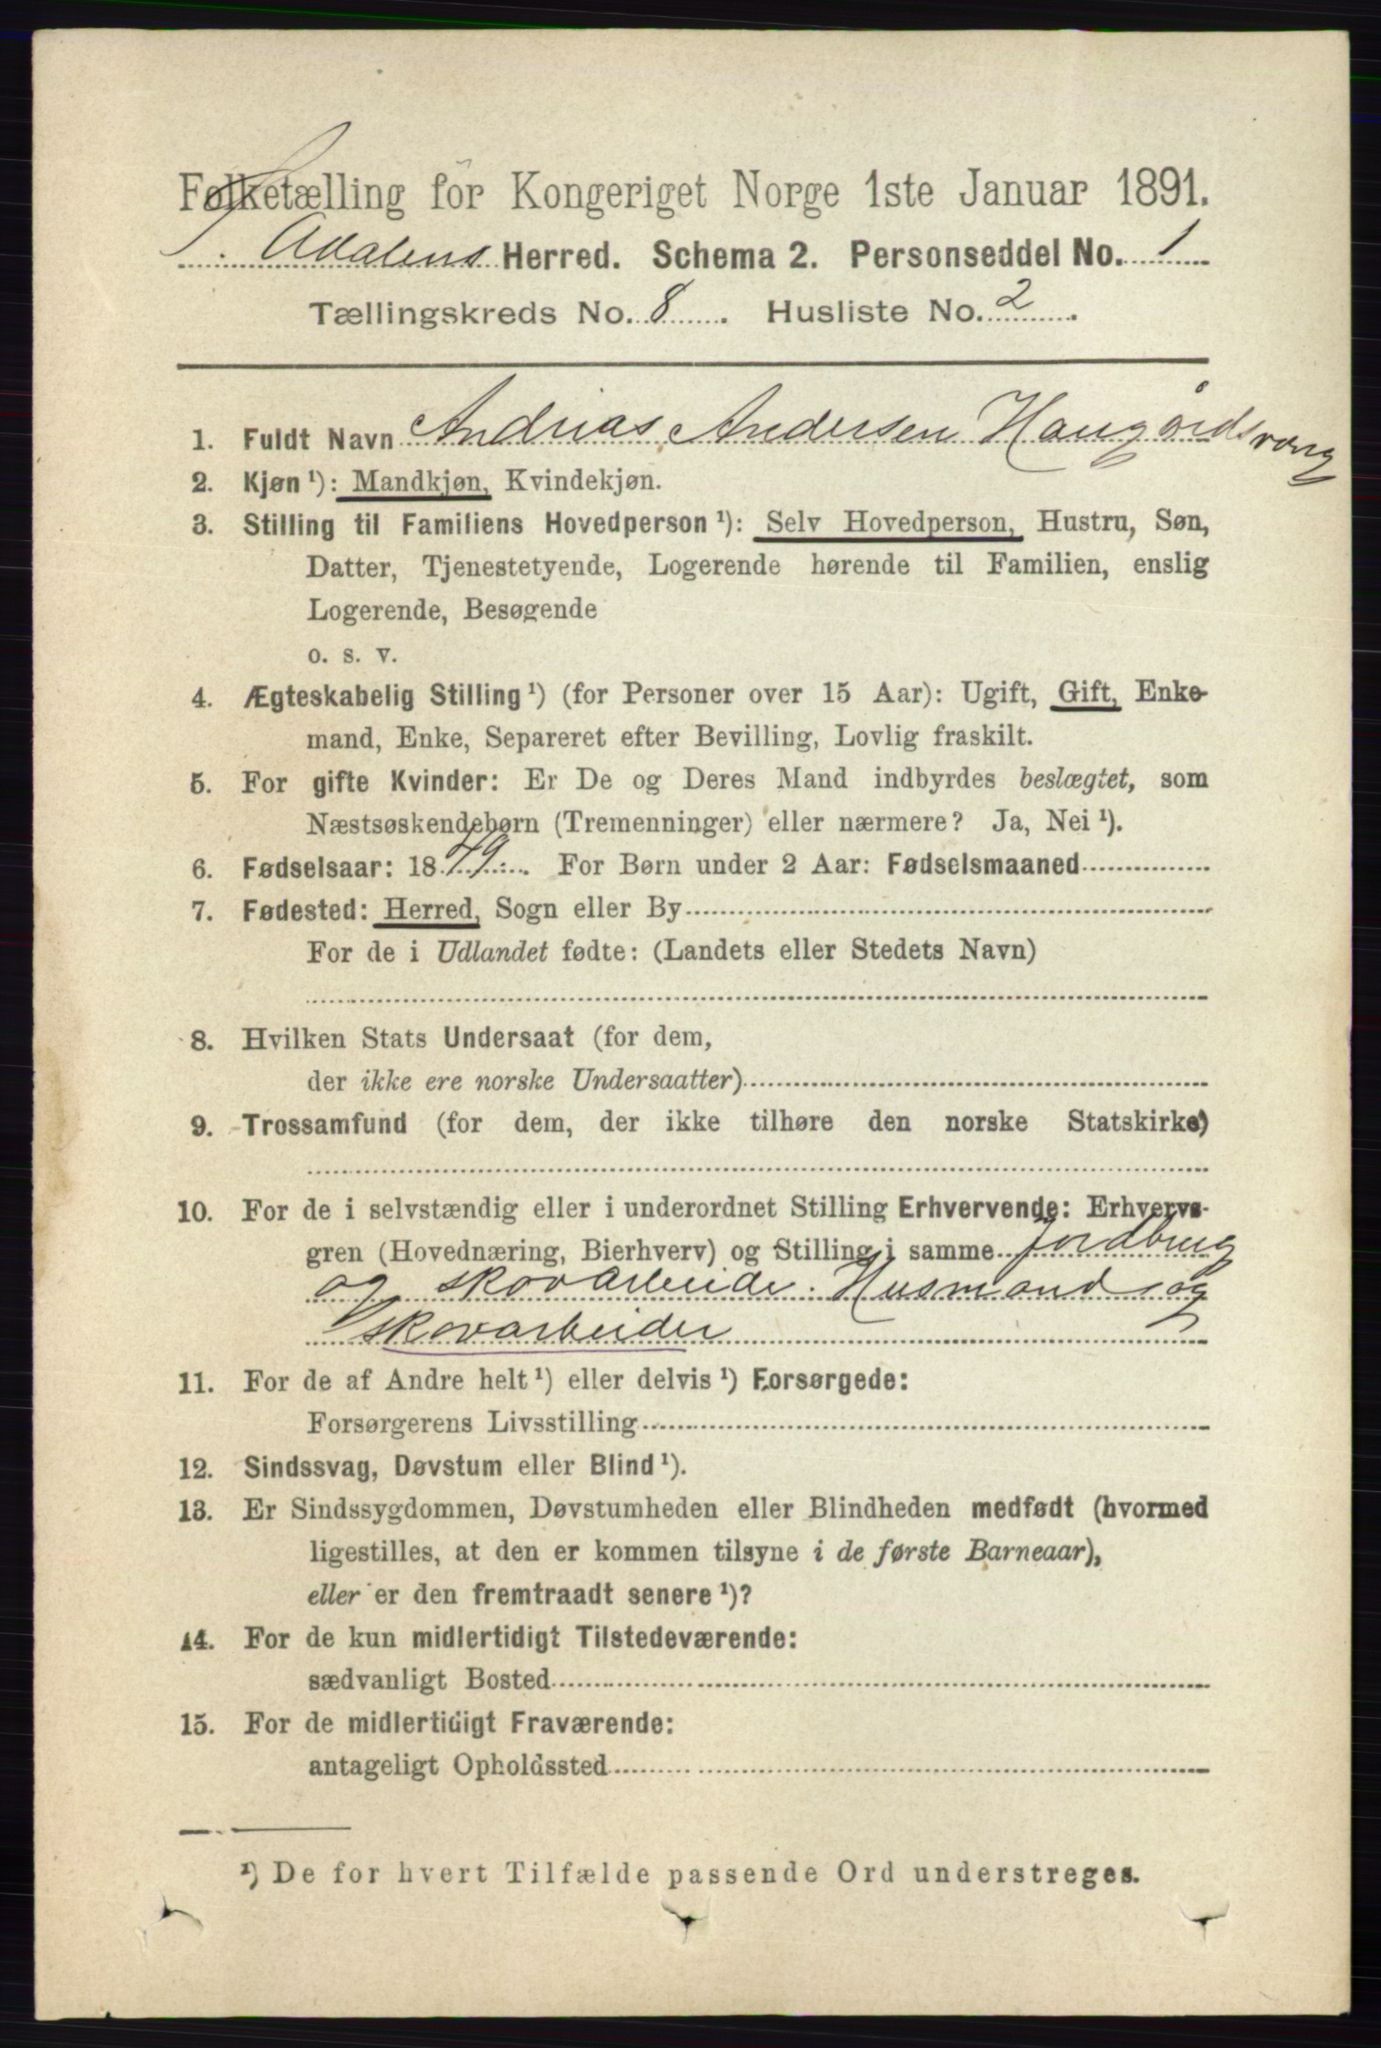 Folketælling for Kongeriget Norge 1ste Januar 1891.
Ådalens Herred. Schema 2. Personseddel No. 1
Tællingskreds No. 8. Husliste No. 2.
1. Fuldt Navn Andrias Andersen Haugårdsvang
2. Kjøn¹): Mandkjøn, Kvindekjøn.
3. Stilling til Familiens Hovedperson¹): Selv Hovedperson, Hustru, Søn,
Datter, Tjenestetyende, Logerende hørende til Familien, enslig
Logerende, Besøgende
o. s. v.
4. Ægteskabelig Stilling¹) (for Personer over 15 Aar): Ugift, Gift, Enke-
mand, Enke, Separeret efter Bevilling, Lovlig fraskilt.
5. For gifte Kvinder: Er De og Deres Mand indbyrdes beslægtet, som
Næstsøskendebørn (Tremenninger) eller nærmere? Ja, Nei¹).
6. Fødselsaar: 1849. For Børn under 2 Aar: Fødselsmaaned
7. Fødested: Herred, Sogn eller By
For de i Udlandet fødte: (Landets eller Stedets Navn)
8. Hvilken Stats Undersaat (for dem,
der ikke ere norske Undersaatter)
9. Trossamfund (for dem, der ikke tilhøre den norske Statskirke)
10. For de i selvstændig eller i underordnet Stilling Erhvervende: Erhvervs-
gren (Hovednæring, Bierhverv) og Stilling i samme Jordbrug
og skovarbeide. Husmand og
skovarbeider
11. For de af Andre helt¹) eller delvis¹) Forsørgede:
Forsørgerens Livsstilling
12. Sindssvag, Døvstum eller Blind¹).
13. Er Sindssygdommen, Døvstumheden eller Blindheden medfødt (hvormed
ligestilles, at den er kommen tilsyne i de første Barneaar),
eller er den fremtraadt senere¹)?
14. For de kun midlertidigt Tilstedeværende:
sædvanligt Bosted
15. For de midlertidigt Fraværende:
antageligt Opholdssted
¹) De for hvert Tilfælde passende Ord understreges.